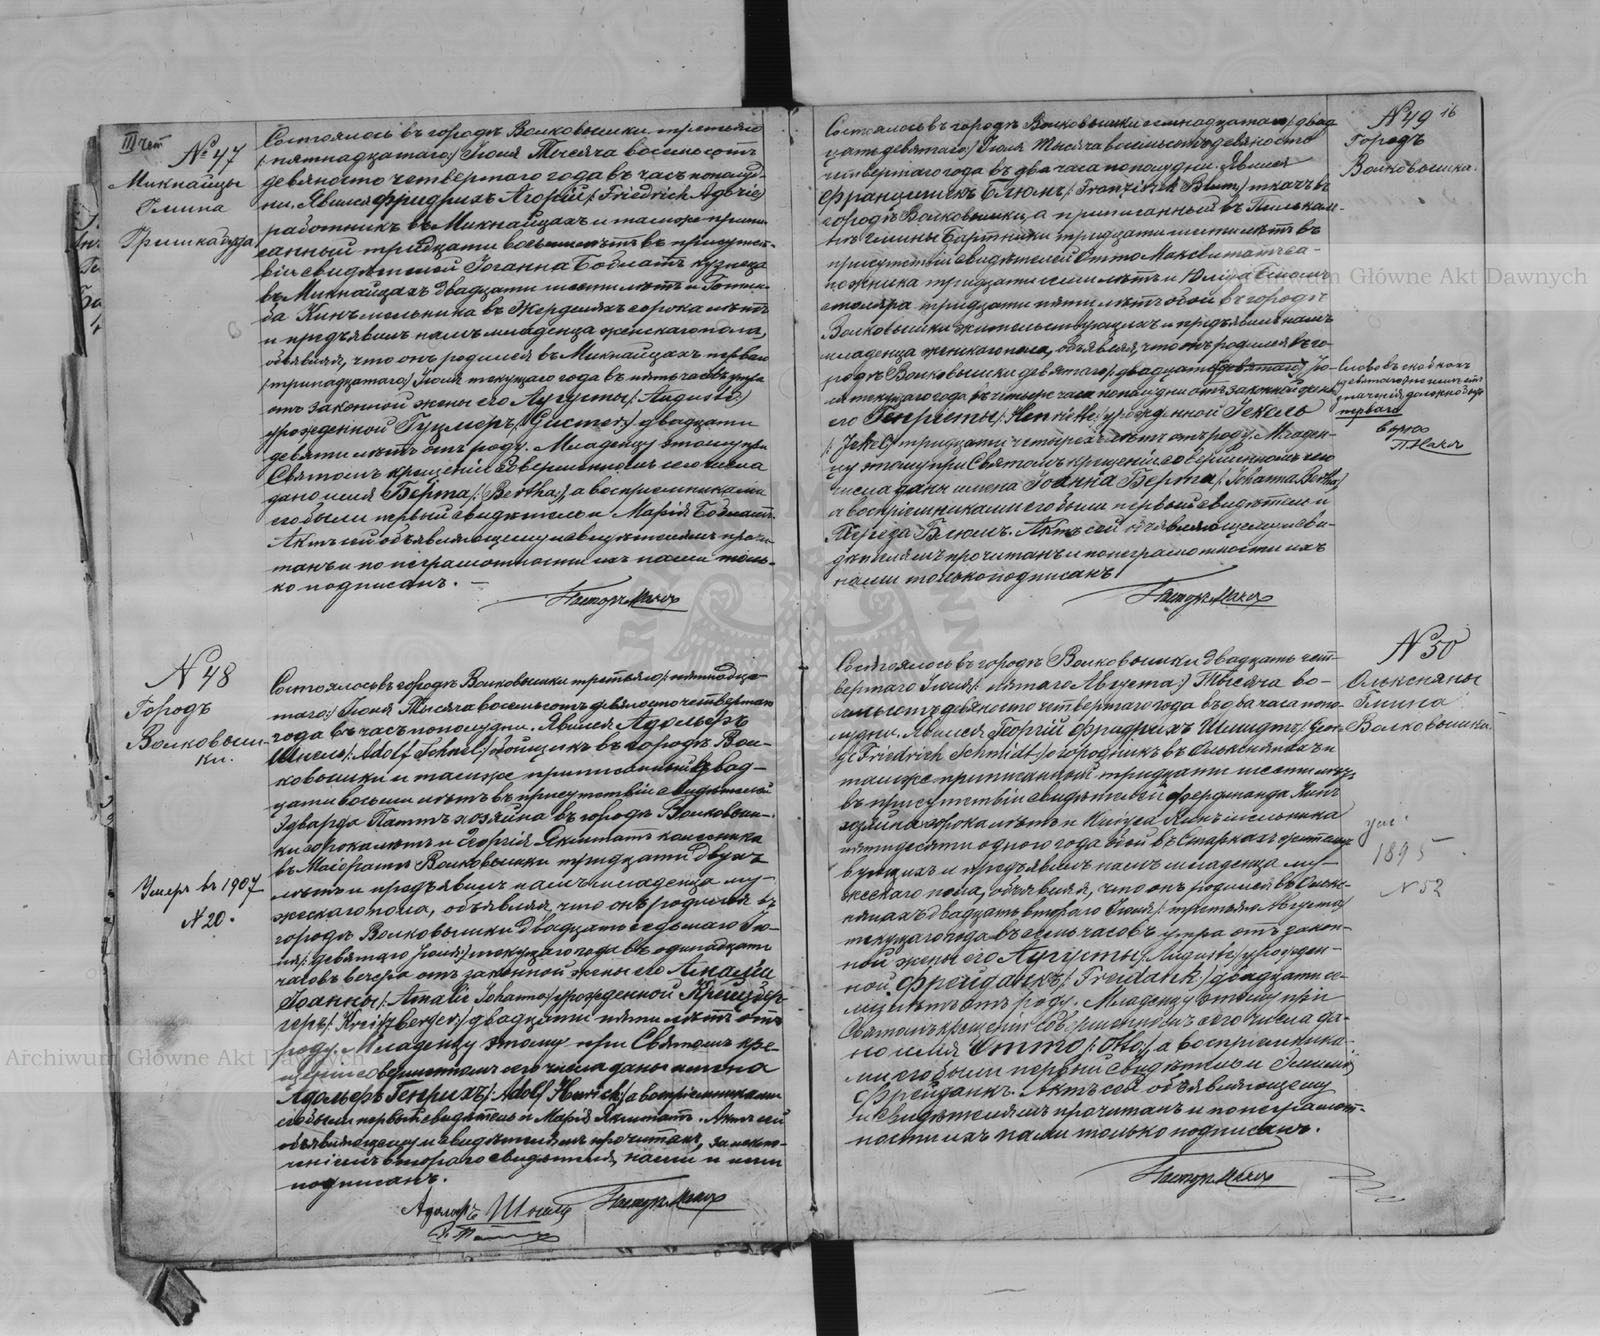 III чет.
№ 47
Микпайцы
Гмина
Гришкабуда
Состоялось въ городѣ Волковышки третьяго
/:пятнадцатаго:/ Іюля Тысяча восемьсотъ
девяносто четвертаго года въ часъ пополуд-
ни. Явился Фридрихъ /:Friedrich
работникъ въ Микпайцахъ и тамъ же припи-
санный тридцати восьми лѣтъ въ присутст-
віи свидѣтелей Іоганна кузнеца
въ Микпайцахъ двадцати шести лѣтъ и Готли-
ба сорока лѣтъ
и предъявилъ намъ младенца женскаго пола,
объявляя, что онъ родился въ Микпайцахъ перваго
/:тринадцатаго:/ Іюля текущаго года въ пять часовъ утра
отъ законной жены его Аугусты /:Auguste:/
урожденной двадцати
девяти лѣтъ отъ роду. Младенцу этому при
Святомъ крещеніи совершенномъ сего числа
дано имя Берта /:Bertha:/, а воспріемниками
его были первый свидѣтель и Марія
Актъ сей объявляющему и свидѣтелямъ прочи-
танъ и по неграмотности ихъ нами толь-
ко подписанъ. —
Пасторъ
№ 48
Городъ
Волковыш-
ки.
Умеръ въ 1907
№ 20.
Состоялось въ городѣ Волковышки третьяго /:пятнадца-
таго:/ Іюля Тысяча восемьсотъ девяносто четвертаго
года въ часъ пополудни. Явился Адольфъ
Шнель /:Adolf Schnel:/ въ городѣ Вол-
ковышки и тамъ же приписанный двад-
цати восьми лѣтъ въ присутствіи свидѣтелей
Эдварда хозяина въ городѣ Волковыш-
ки сорока лѣтъ и Георгія
въ Маіоратѣ Волковышки тридцати двухъ
лѣтъ и предъявилъ намъ младенца му-
жескаго пола, объявляя, что онъ родился въ
городѣ Волковышки двадцать седьмаго Ію-
ня /:девятаго Іюля:/ текущаго года въ одинадцать
часовъ вечера отъ законной жены его Амаліи
Іоанны /:Amalie Johanna:/ урожденной Крейцбер-
геръ /:Kreizberger:/ двадцати пяти лѣтъ отъ
роду. Младенцу этому при Святомъ кре-
щеніи совершенномъ сего числа даны имена
Адольфъ Генрихъ /:Adolf Heinrich:/ а воспріемниками
его были первый свидѣтель и Марія Актъ сей
объявляющему и свидѣтелямъ прочитанъ, за исклю-
ченіемъ втораго свидѣтеля, нами и ими
подписанъ.
Адольфъ Шнель Пасторъ
№ 49
16
Городъ
Волковышки.
Состоялось въ городѣ Волковышки семнадцатаго /:двад
цать девятаго:/ Іюля Тысяча восемьсотъ девяносто
четвертаго года въ два часа пополудни. Явился
Францишекъ Блюмъ /:Franzischk Blum:/ ткачъ въ
городѣ Волковышки, а приписанный въ
гмины Бартники тридцати шести лѣтъ въ
присутствіи свидѣтелей Отто
тридцати семи лѣтъ и
столяра тридцати пяти лѣтъ обоихъ въ городѣ
Волковышки жительствующихъ и предъявилъ намъ
младенца женскаго пола, объявляя, что онъ родился въ го-
родѣ Волковышки девятаго /:двадцать девятаго:/ Ію-
ля текущаго года въ четыре часа пополудни отъ законной жены
его Генріеты /:Henriethe:/ урожденной Іекель
/:Jekel:/ тридцати четырехъ лѣтъ отъ роду. Младен-
цу этому при Святомъ крещеніи совершенномъ сего
числа даны имена Іоанна Берта /:Johanna Bertha:/
а воспріемниками его были первый свидѣтель и
Тереза Блюмъ. Актъ сей объявляющему и сви-
дѣтелямъ прочитанъ и по неграмотности ихъ
нами только подписанъ.
Пасторъ
Слово въ скобкахъ
девятаго
должно быть
перваго
Вѣрно
№ 50
Олькспяны
Гмина
Волковышки.
ум.
1895
№ 52
Состоялось въ городѣ Волковышки двадцать чет-
вертаго Іюля /:пятаго Августа:/ Тысяча во-
семьсотъ девяносто четвертаго года въ два часа попо-
лудни. Явился Георгій Фридрихъ Шмидтъ /:Geor-
g Friedrich Schmidt:/ огородникъ въ Олькспянахъ и
тамъ же приписанный тридцати шести лѣтъ
въ присутствіи свидѣтелей Фердинанда
хозяина сорока лѣтъ и
пятидесяти одного года обоихъ въ жительст-
вующихъ и предъявилъ намъ младенца му-
жескаго пола, объявляя, что онъ родился въ Ольк-
спянахъ двадцать втораго Іюля /:третьяго Августа:/
текущаго года въ семь часовъ утра отъ закон-
ной жены его Аугусты /:Auguste:/ урожден-
ной Фрейданкъ /:Freidank:/ двадцати се-
ми лѣтъ отъ роду. Младенцу этому при
Святомъ крещеніи совершенномъ сего числа да-
но имя Отто /:Otto:/ а воспріемника-
ми его были первый свидѣтель и Эмилія
Фрейданкъ. Актъ сей объявляющему
и свидѣтелямъ прочитанъ и по неграмот-
ности ихъ нами только подписанъ.
Пасторъ
Archiwum Główne Akt Dawnych
Archiwum Główne Akt Dawnych